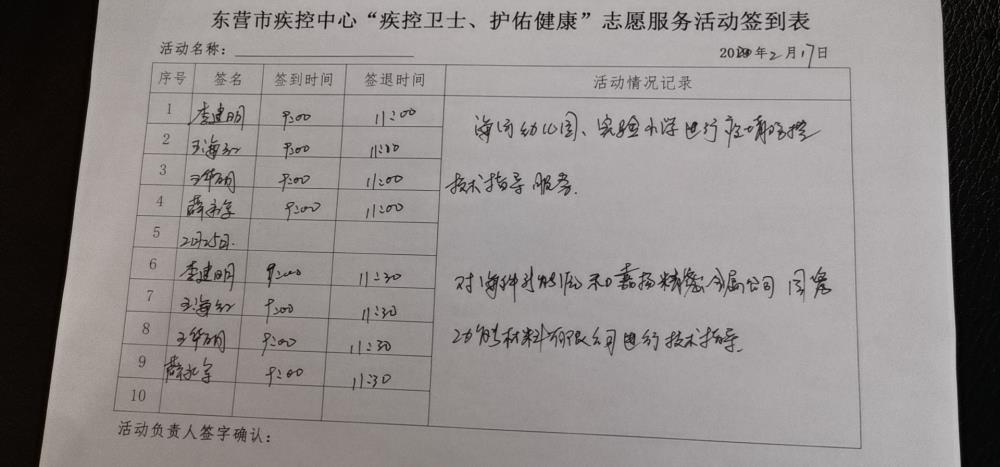 东营市疾控中心“疾控卫士、护佑健康”志愿服务活动签到表
活动名称：
2020年2月17日
序号 签名 签到时间 签退时间 活动情况记录
1 李建明 9:00 11:00
2 王海红 9:00 11:00
3 王华明 9:00 11:00
4 薛永军 9:00 11:00
5 2月25日.
6 李建明 9:00 11:30
7 王海红 9:00 11:30
8 王华明 9:00 11:30
9 薛永军 9:00 11:30
10
幼儿园、实验小学进行疫情防控
技术指导服务.
对海科 和嘉扬精密金属公司 国瓷
功能材料有限公司进行技术指导.
活动负责人签字确认：